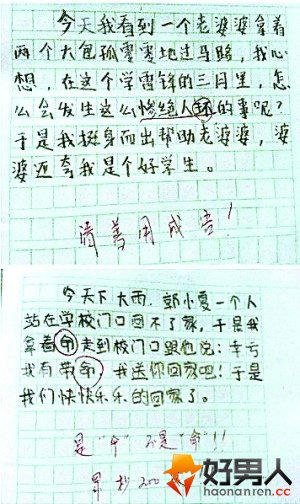 今天我看到一个老婆婆拿着
两个大包孤零零地过马路，我心
想，在这个学雷锋的三月里，怎
么会发生这么惨绝人环的事呢？
于是我挺身而出帮助老婆婆，婆
婆还夸我是个好学生。
请善用成语！
今天下大雨，郭小夏一个人
站在学校门口回不了家，于是我
拿着命走到校门口跟他说：幸亏
我有带命，我送你回家吧！于是
我们快快乐乐的回家了。
是“伞”不是“命”！！
罚抄200
好男人
haonanren.cc